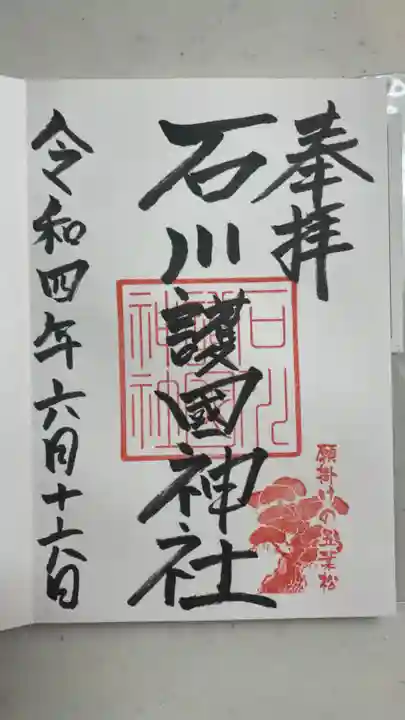 奉拝
石川護國神社
石川
護國
神社
願掛けの五葉松
令和四年六月十六日